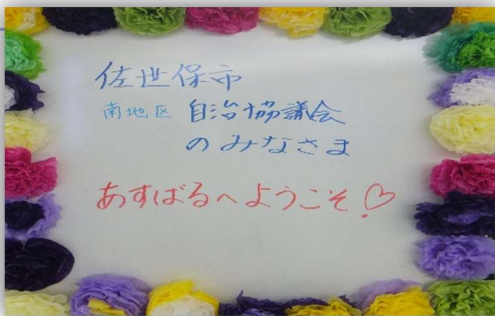 佐世保市
南地区 自治協議会
のみなさま
あすばるへようこそ!♡